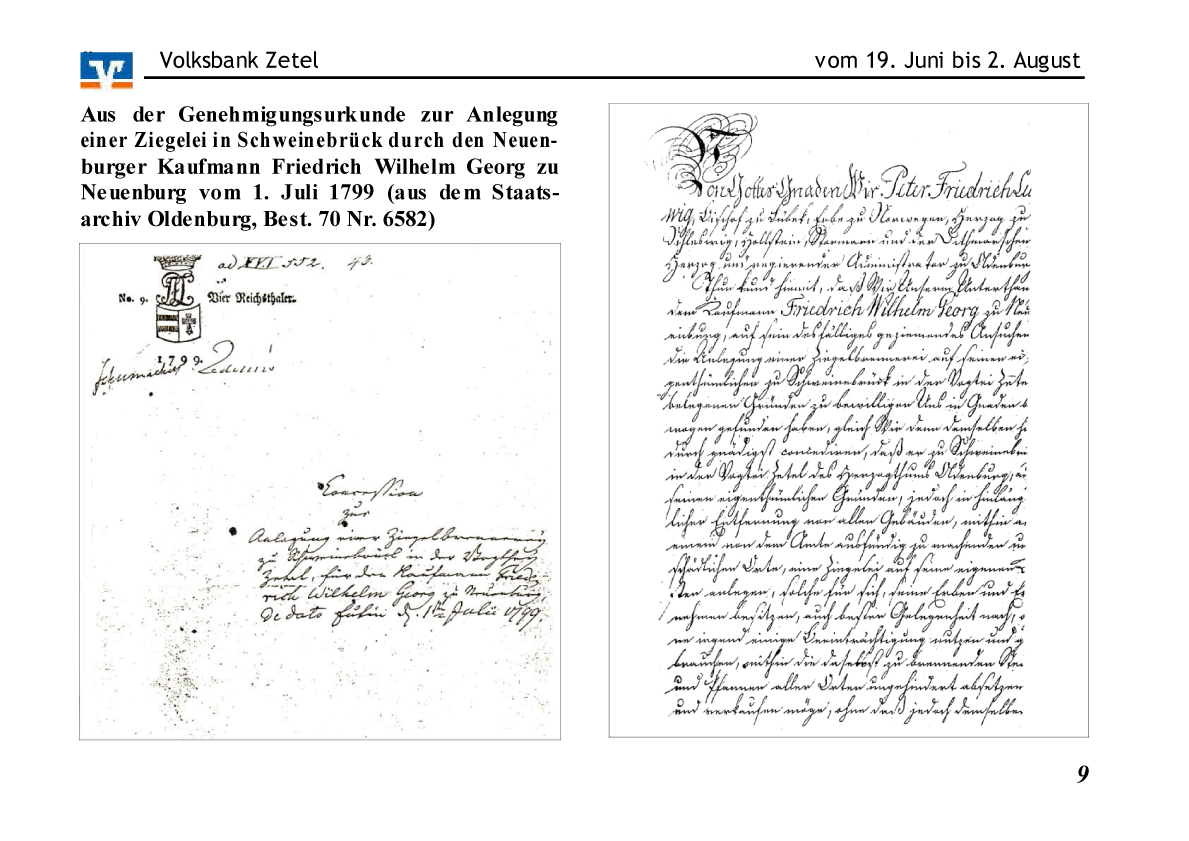 Volksbank Zetel
vom 19. Juni bis 2. August
Aus der Genehmigungsurkunde zur Anlegung
einer Ziegelei in Schweinebrück durch den Neuen-
burger Kaufmann Friedrich Wilhelm Georg zu
Neuenburg vom 1. Juli 1799 (aus dem Staats-
archiv Oldenburg, Best. 70 Nr. 6582)
ad XVI 552. 43.
No. 9. Vier Reichsthaler.
1799.
Schumacher
Concession
zur
Anlegung einer Ziegelbrennerey
zu Schweinebrück in der Vogthey
Zetel, für den Kaufmann Fried-
rich Wilhelm Georg zu Neuenburg,
de dato Eutin d. 1ten Julii 1799.
Von Gottes Gnaden Wir Peter Friedrich Lu
wig, Bischof zu Lübek, Erbe zu Norwegen, Herzog zu
Schleswig, Hollstein, Stormarn und der Dithmarschen
Herzog und regierender Administrator zu Oldenbur
Thun kund hiemit, daß Wir Unserm Unterthan
dem Kaufmann Friedrich Wilhelm Georg zu Neu
enburg, auf sein desfälliges geziemendes Ansuchen
die Anlegung einer Ziegelbrennerei auf seinen ei
genthümlichen zu Schweinebrück in der Vogtei Zete
belegenen Gründen zu bewilligen Uns in Gnaden
wogen gefunden haben, gleich Wir denn demselben hi
durch gnädigst concediren, daß er zu Schweinebrü
in der Vogtei Zetel des Herzogthums Oldenburg, au
seinen eigenthümlichen Gründen, jedoch in hinläng
licher Entfernung von allen Gebäuden, mithin a
einem von dem Amte ausfündig zu machenden un
schädlichen Orte, eine Ziegelei auf seine eigenen
sten anlegen, solche für sich, seine Erben und Er
nehmen besitzen, auch bester Gelegenheit nach, o
ne irgend einige Beeinträchtigung nutzen und g
brauchen, mithin die daselbst zu brennenden Stei
und Pfannen aller Orten ungehindert absetzen
und verkaufen möge, ohne daß jedoch demselben
9